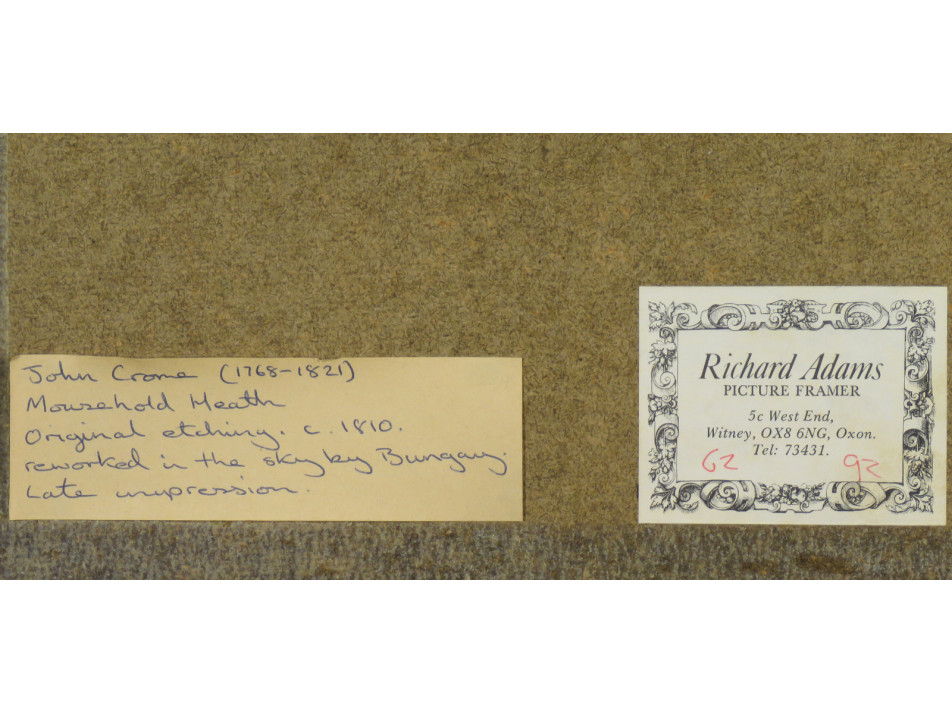 John Crome (1768-1821)
Mousehold Heath
Original etching. c. 1810.
reworked in the sky by Bungay.
Late impression.
Richard Adams
PICTURE FRAMER
5c West End,
Witney, OX8 6NG, Oxon.
Tel: 73431.
62 92